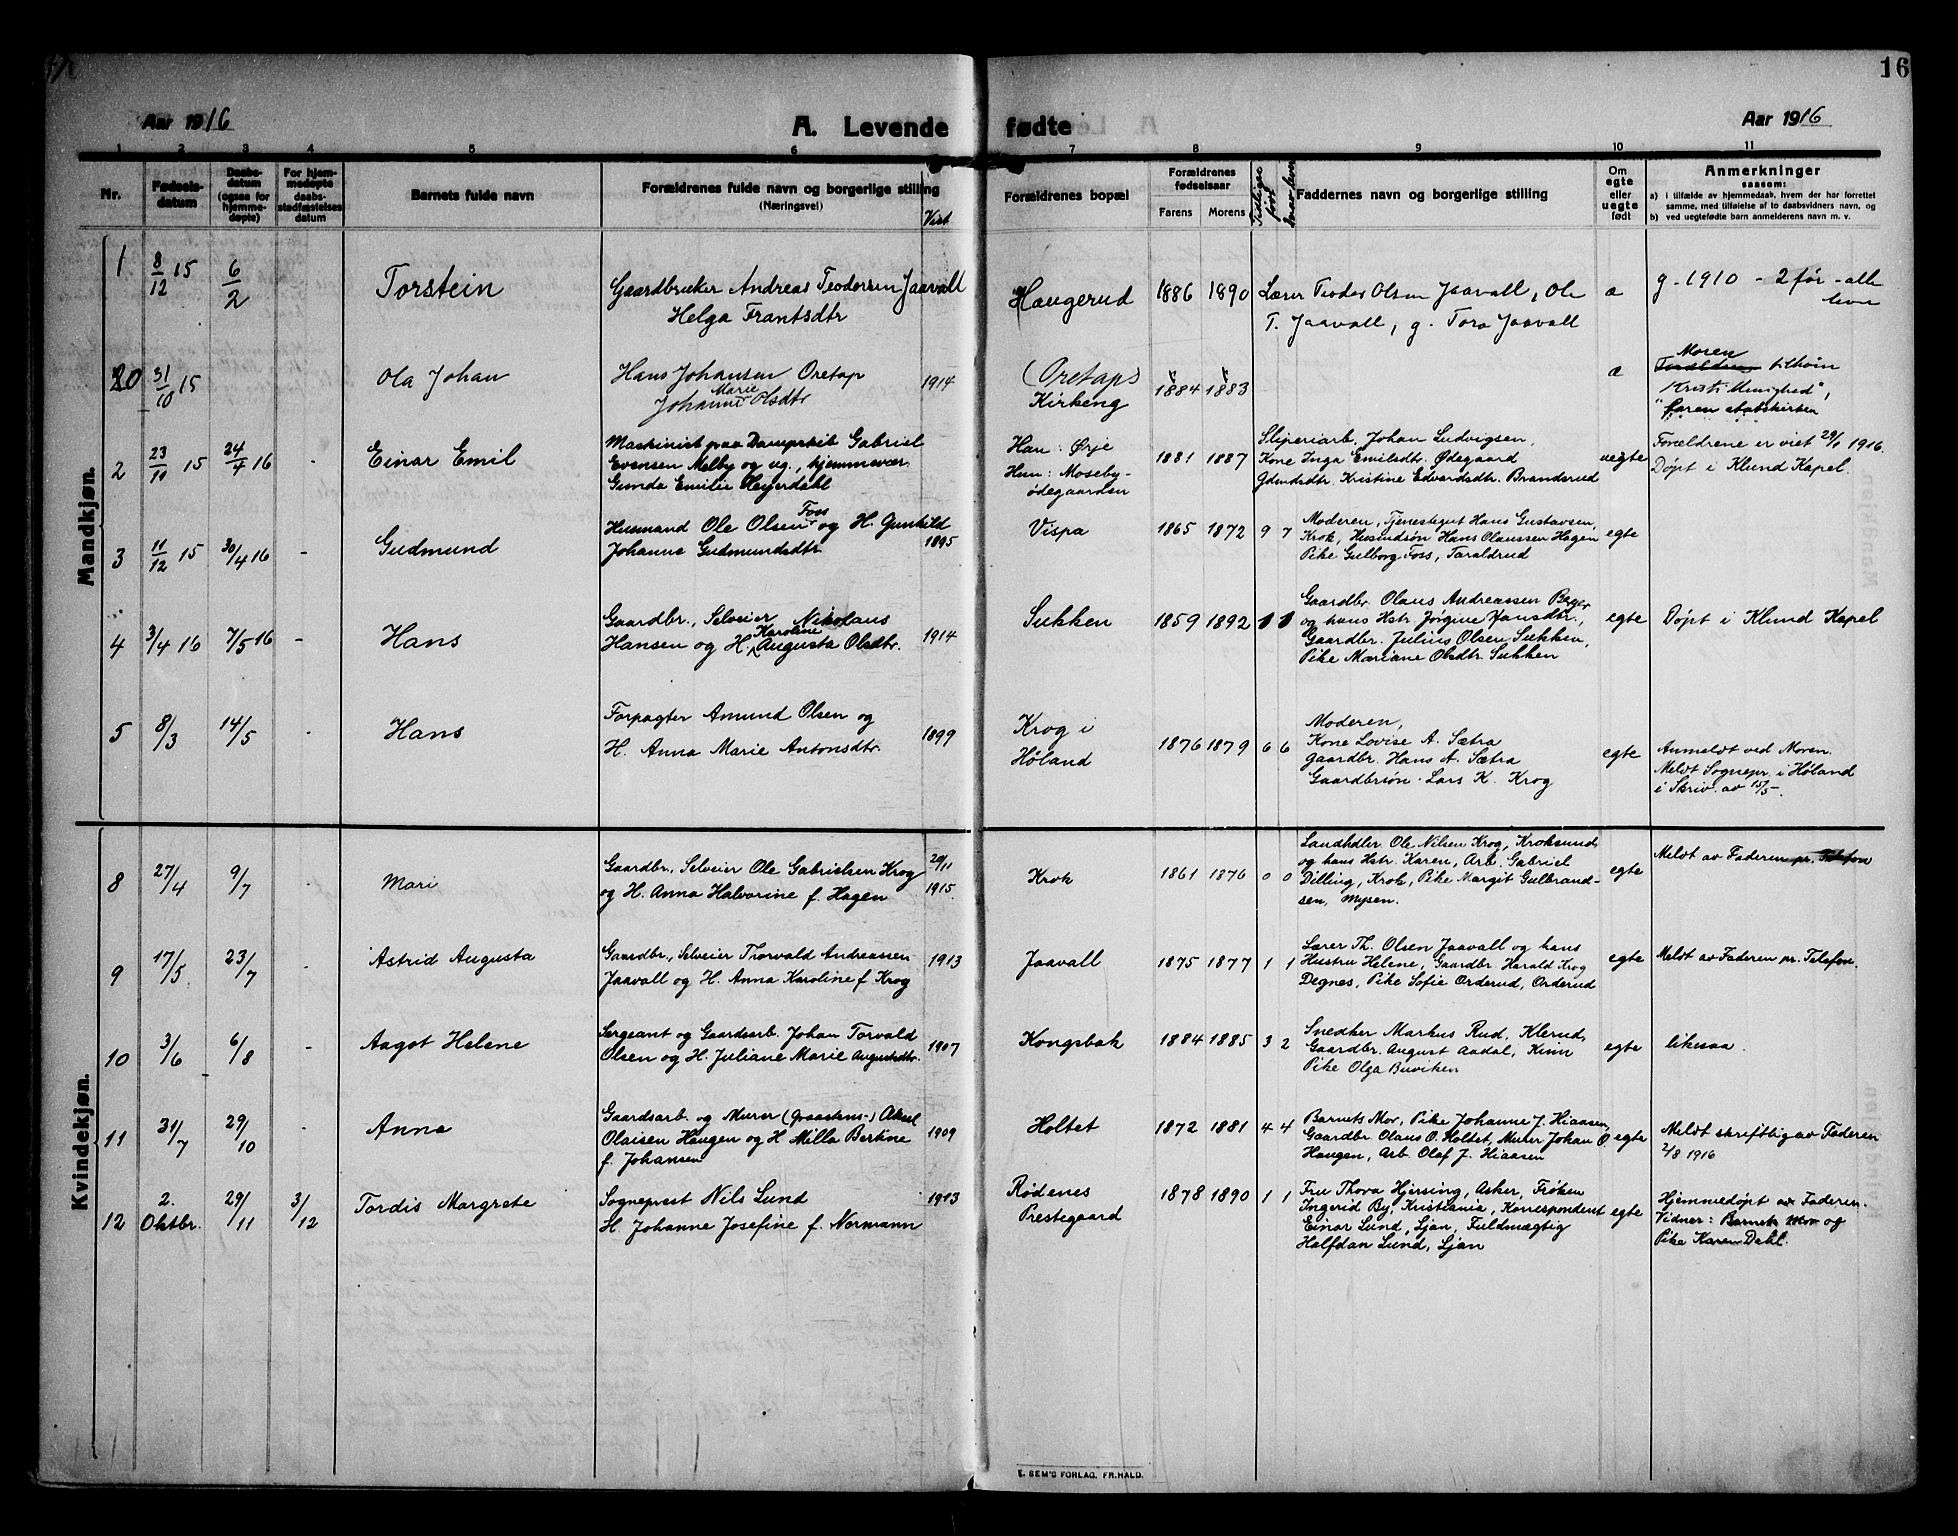 16
Aar 1916
A. Levende fødte
Aar 1916
1 2 3 4 5 6 7 8 9 10 11
Nr.
Fødsels-
datum
Daabs-
datum
(ogsaa for
hjemme-
døpte)
For hjem-
medøpte
daabs-
stadfæstelses
datum
Barnets fulde navn
Forældrenes fulde navn og borgerlige stilling
(Næringsvei)
Viet
Forældrenes bopæl
Forældrenes
fødselsaar
Farens Morens
Faddernes navn og borgerlige stilling
Om
egte
eller
uegte
født
Anmerkninger
saasom:
a) i tilfælde av hjemmedaab, hvem der har forrettet
samme, med tilføielse af to daabsvidners navn, og
b) ved uegtefødte barn anmelderens navn m. v.
Mandkjøn.
1 8/12 15 6/2 Torstein
Gaardbruker Andreas Teodorsen Jaavall
Helga Frantsdtr
Haugerud 1886 1890
Lærer Teodor Olsen Jaavall, Ole
T. Jaavall, g. Tora Jaavall
a
g. 1910 - 2 før - alle
leve
20 31/10 15 Ola Johan
Hans Johansen Oretop
Johanne Marie Olsdtr
1914
(Oretop)
Kirkeng
1884 1883
a
Moren
Forældrene tilhører
Kristi Menighed",
faren statskirken
2 23/11 15 24/4 16 - Einar Emil
Maskinist paa Dampskib Gabriel
Evensen Melby og ug., hjemmevær.
Gunda Emilie Heyerdahl
Han: Ørje
Hun: Moseby-
ødegaarden
1881 1887
Sliperiarb. Johan Ludvigsen,
Kone Inga Emilsdtr. Ødegaard
Gdmdsdtr. Kristine Edvardsdtr. Brandsrud
uegte
Forældrene er viet 29/1 1916.
Døpt i Klund Kapel.
3 11/12 15 30/4 16 - Gudmund
Husmand Ole Olsen Foss og H. Gunhild
Johanne Gudmundsdtr
1895
Vispa 1865 1872 9 7
Moderen, Tjenestegut Hans Gustavsen,
Krok, Husmdsøn Hans Olaussen Hagen
Pike Gulborg Foss, Taraldrud
egte
4 3/4 16 7/5 16 - Hans
Gaardbr., Selveier Nikolaus
Hansen og H. Karoline Augusta Olsdtr.
1914
Sukken 1859 1892 1 1
Gaardbr. Olaus Andreassen Berger
og hans Hstr. Jørgine Hansdtr.,
Gaardbr. Julius Olsen Sukken,
Pike Mariane Olsdtr Sukken
egte
Døpt i Klund Kapel
5 8/3 14/5 - Hans
Forpagter Amund Olsen og
H. Anna Marie Antonsdtr.
1899
Krog i
Høland
1876 1879 6 6
Moderen,
Kone Lovise A. Sætra
gaardbr. Hans A. Sætra
Gaardbrsøn Lars K. Krog
egte
Anmeldt ved Moren.
Meldt Sognepr. i Høland
i Skriv. av 15/5.
Kvindekjøn.
8 27/4 9/7 - Mari
Gaardbr., Selveier Ole Gabrielsen Krog
og H. Anna Halvorine f. Hagen
29/11
1915.
Krok 1861 1876 0 0
Landhdler Ole Nilsen Krog, Kroksund,
og hans Hstr. Karen, Arb. Gabriel
Dilling, Krok, Pike Margit Gulbrand-
sen, Mysen.
egte
Meldt av Faderen pr. Telefon
9 17/5 23/7 - Astrid Augusta
Gaardbr., Selveier Thorvald Andreassen
Jaavall og H. Anna Karoline f. Krog
1913
Jaavall 1875 1877 1 1
Lærer Th. Olsen Jaavall og hans
Hustru Helene, Gaardbr. Harald Krog
Degnes, Pike Sofie Orderud, Orderud
egte
Meldt av Faderen pr. Telefon.
10 3/6 6/8 - Aagot Helene
Sergeant og Gaardsarb. Johan Torvald
Olsen og H. Juliane Marie Augustsdtr.
1907
Kongsbak 1884 1885 3 2
Snedker Markus Rud, Klerud,
Gaardbr. August Aadal, Kinn
Pike Olga Buviken
egte
likesaa.
11 31/7 29/10 - Anna
Gaardsarb. og Murer (graastens-) Aksel
Olaisen Haugen og H Milla Bertine
f. Johansen
1909
Holtet 1872 1881 4 4
Barnets Mor, Pike Johanne J. Hiaasen,
Gaardbr. Olaus O. Holtet, Murer Johan O.
Haugen, Arb. Olaf J. Hiaasen
egte
Meldt skriftlig av Faderen
2/8 1916
12 2. Oktbr. 29/11 3/12 Tordis Margrete
Sogneprest Nils Lund
H. Johanne Josefine f. Normann
1913
Rødenes
Prestegaard
1878 1890 1 1
Fru Thova Hjersing, Asker, Frøken
Ingerid By, Kristiania, Korrespondent
Einar Lund, Ljan, Fuldmægtig
Halfdan Lund, Ljan
egte
Hjemmedøpt av Faderen.
Vidner: Barnets Mor og
Pike Karen Dahl.
E. SEM'S FORLAG, FR.HALD.